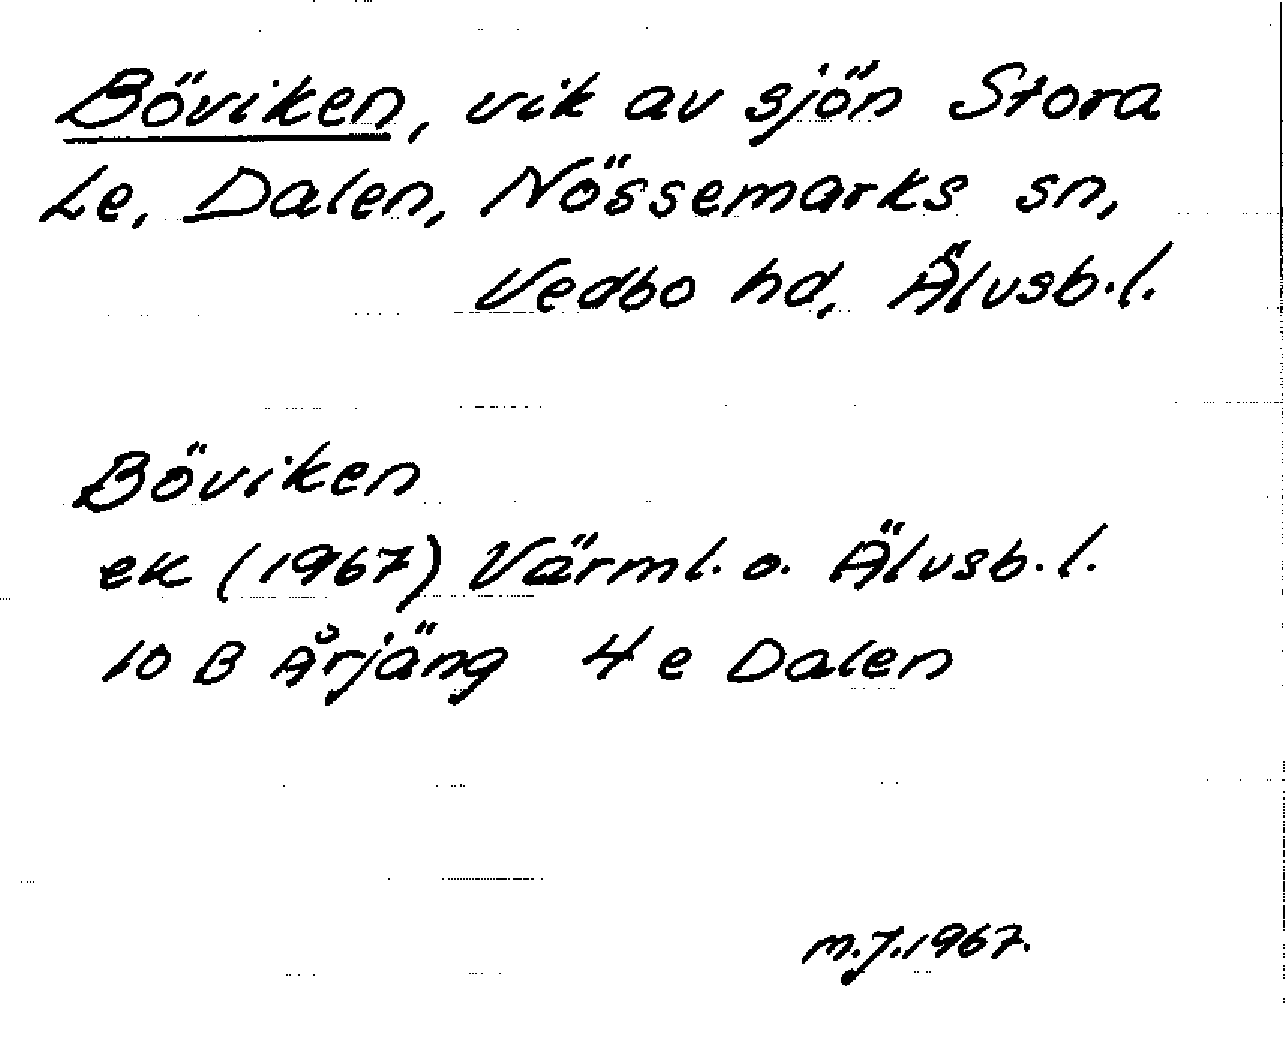 Böviken, vik av sjön Stora
Le, Dalen, Nössemarks sn,
Vedbo hd, Älvsb.l.
Böviken
ek (1967) Värml. o. Älvsb.l.
10 B Årjäng 4 e Dalen
M.J.1967.